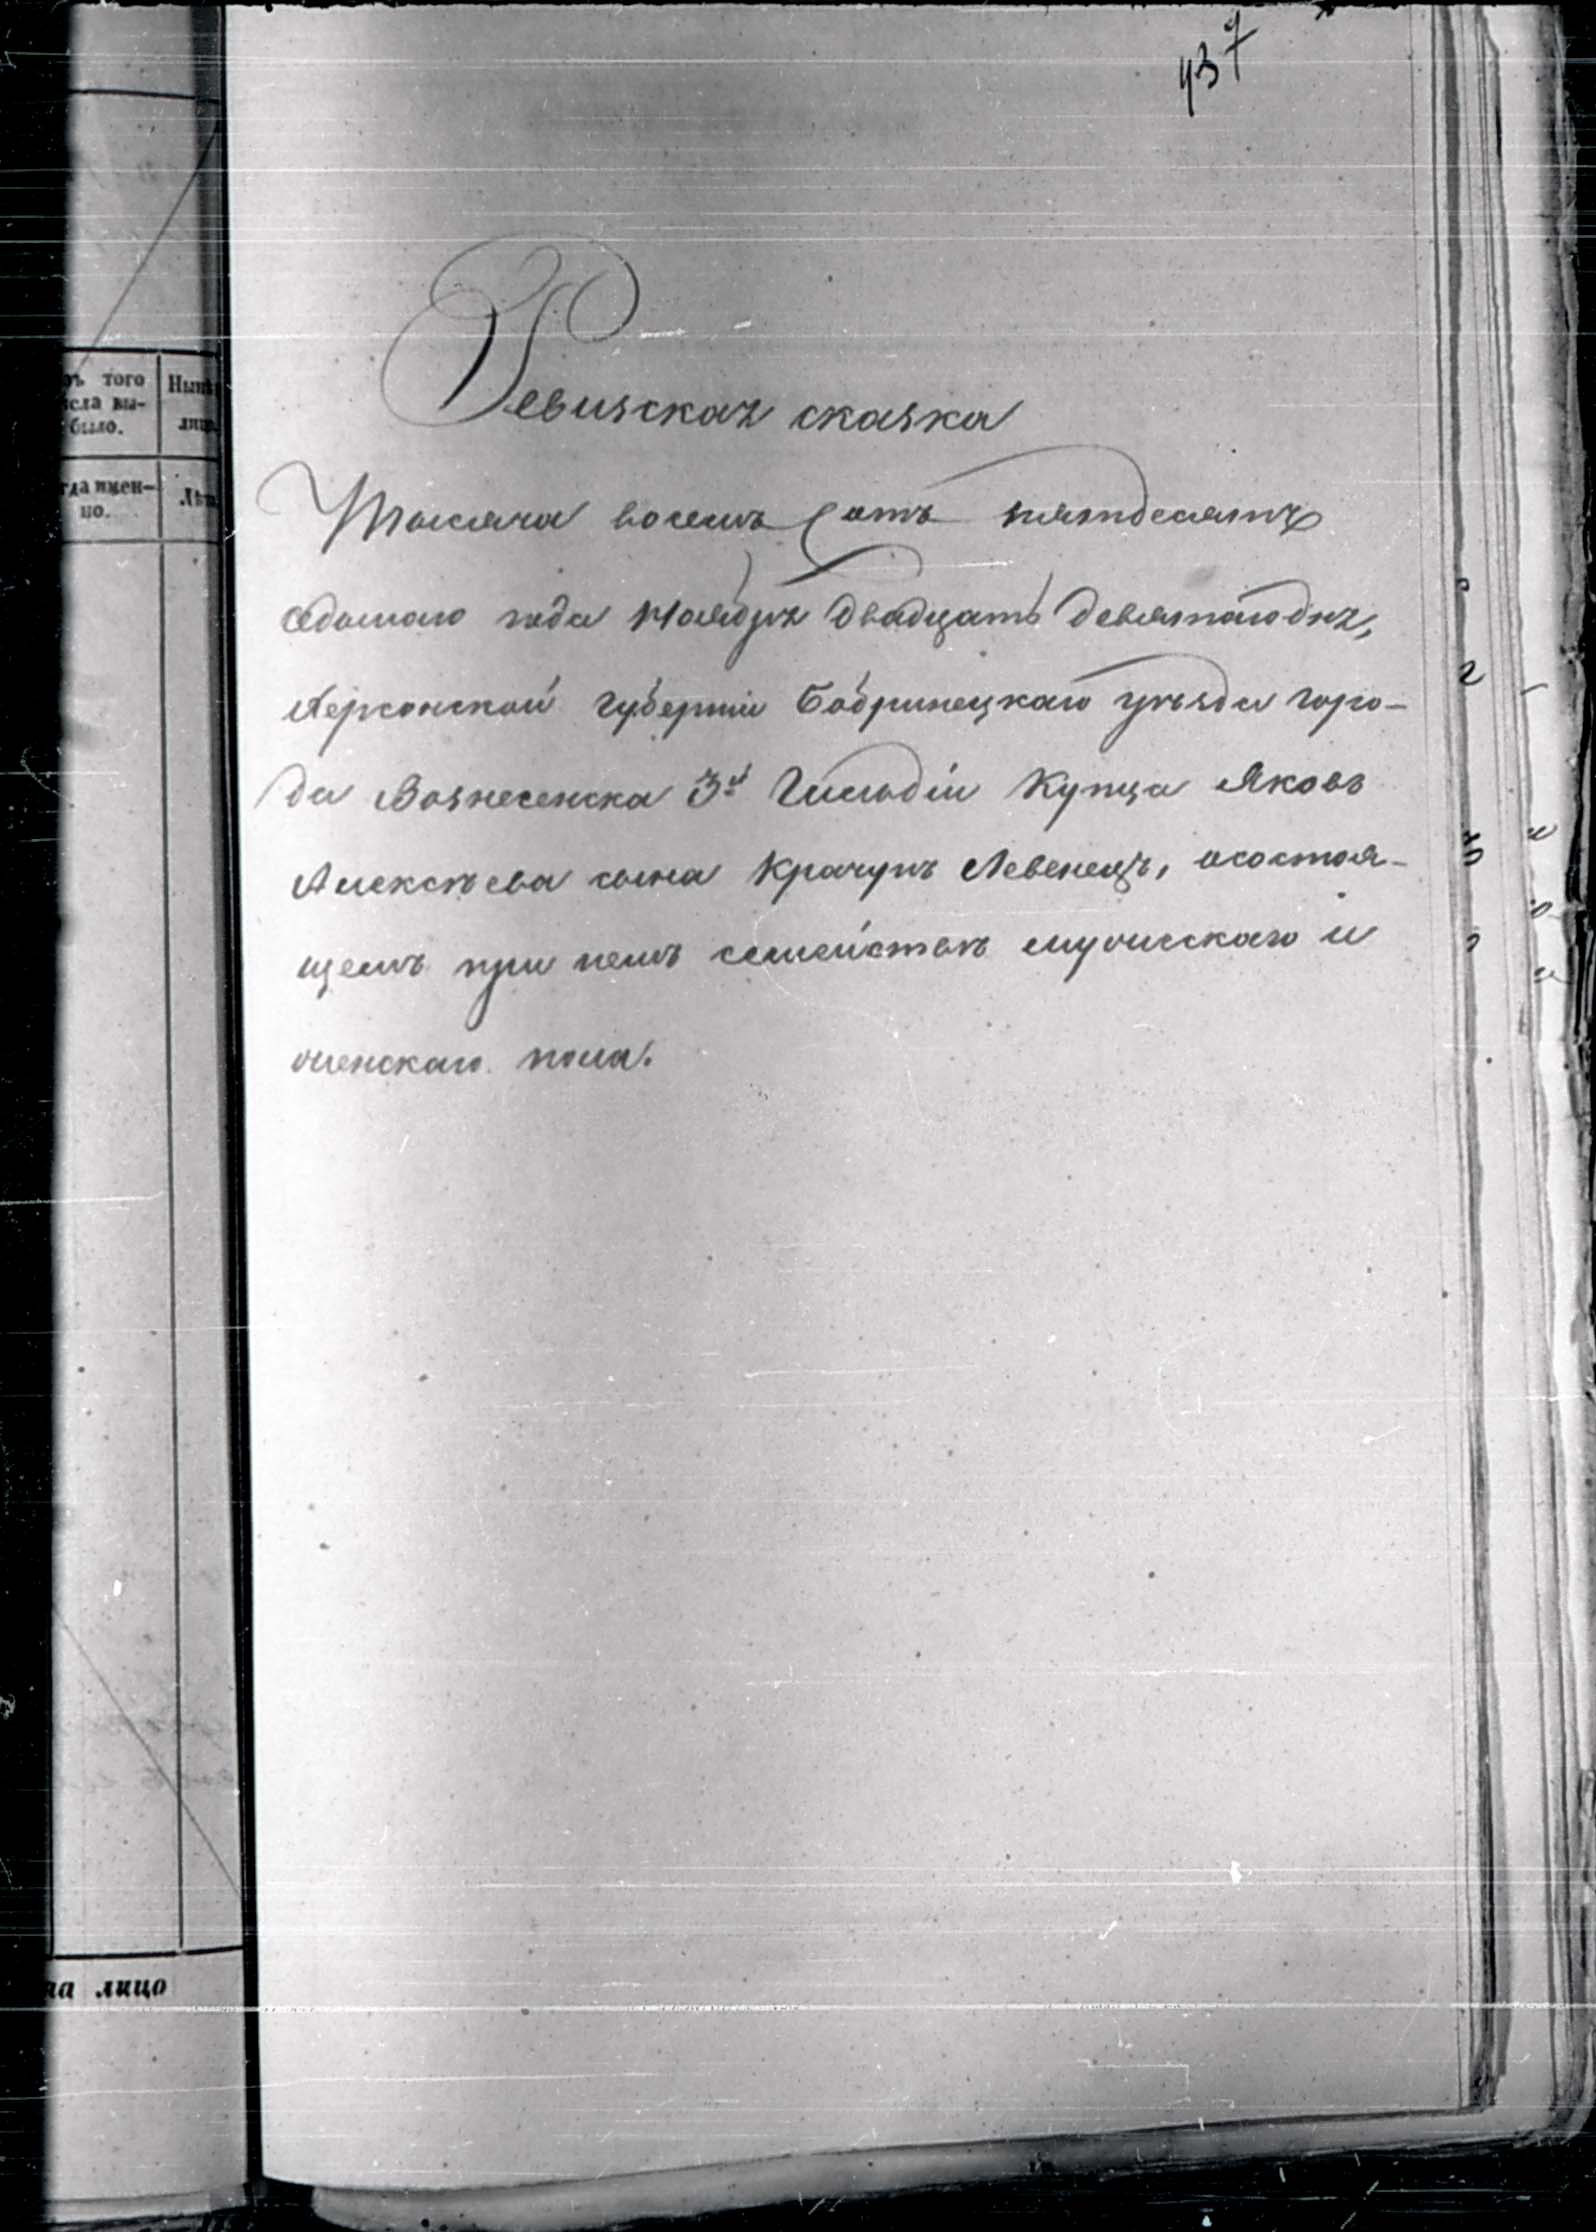 437
Ревизская сказка
Тысяча восемь сотъ пятдесятъ
седьмаго года Ноября двадцать девятагодня,
Херсонской губерніи Бобринецкаго уѣзда горо-
да Вознесенска 3й Гильдіи Купца Яковъ
Алексѣева сына Крачунъ Левенецъ, осостоя-
щемъ при немъ семействѣ мужескаго и
женскаго пола.
того
вы-
было.
имен-
но.
на лицо